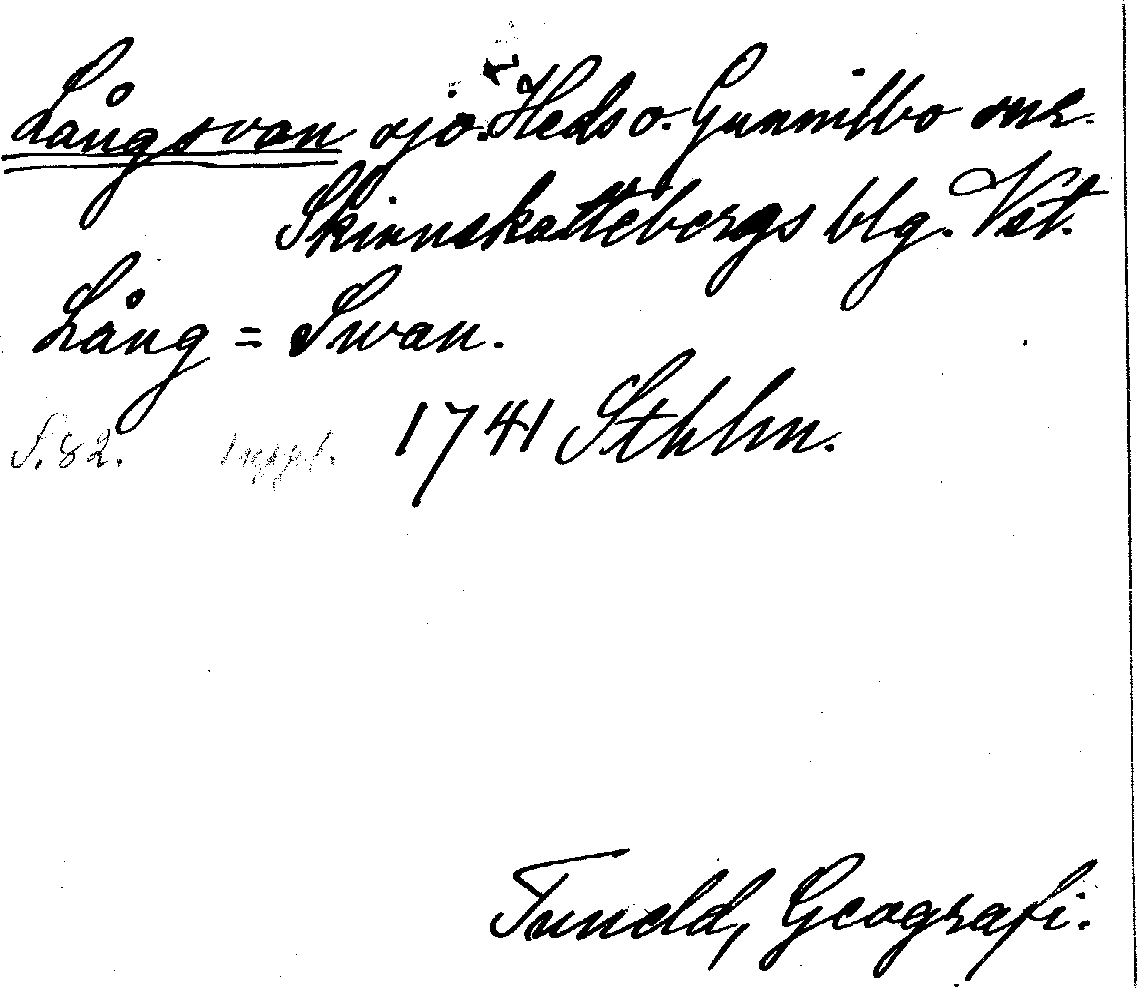 Långsvan sjö. Heds o. Gunnilbo snr.
Skinnskattebergs blg. Vst.
Lång = Swan.
S. 82. 1741 Sthlm.
Tuneld, Geografi.